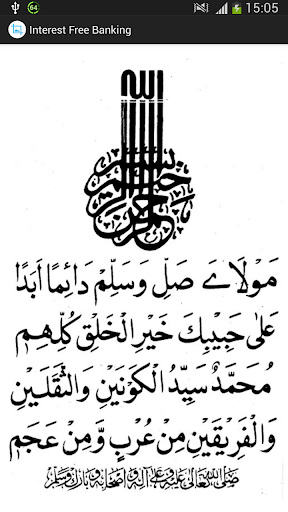 64 15:05
Interest Free Banking
بسم الله الرحمن الرحيم
مَوْلَاے صَلِّ وَسَلِّمْ دَائِمًا اَبَدًا
عَلٰى حَبِيْبِكَ خَيْرِ الْخَلْقِ كُلِّهِم
مُحَمَّدٌ سَيِّدُ الْكَوْنَيْنِ وَالثَّقَلَيْنِ
وَالْفَرِيْقَيْنِ مِنْ عُرْبٍ وَّمِنْ عَجَمٍ
صلى الله تعالى عليه وعلى آله واصحابه وبارك وسلم